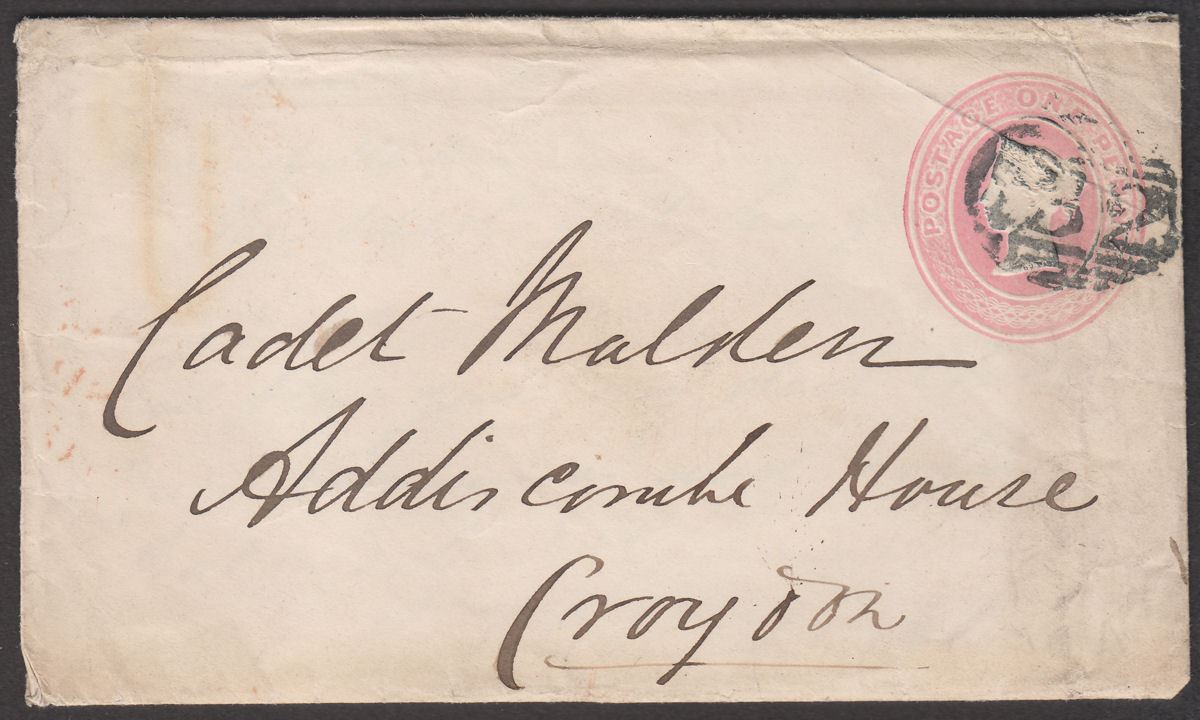 POSTAGE ONE PENNY
Cadet Malden
Addiscombe House
Croydon